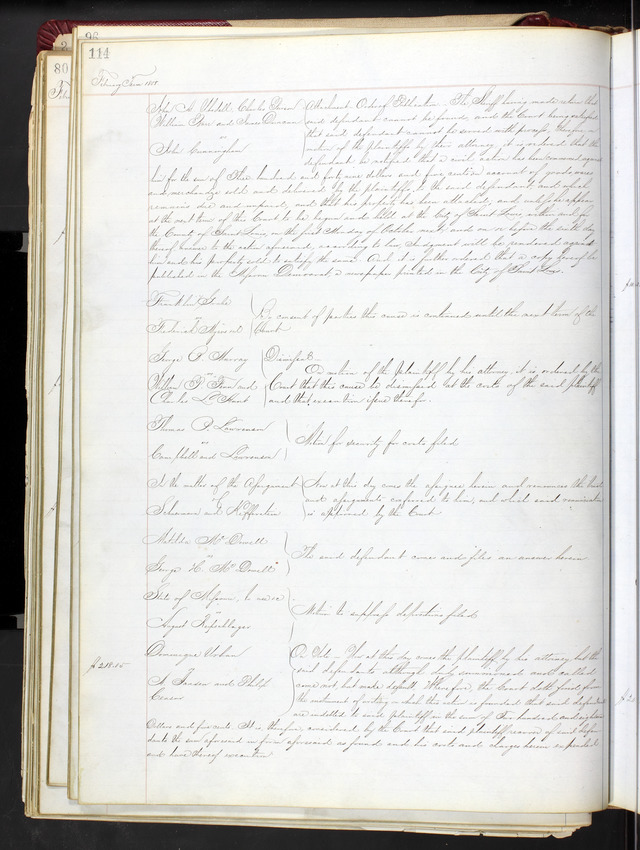 96
2
80
114
February Term 1858
John A. Charles
William and James Duncan
vs
John Cunningham
Attachment Order of Publication. The Sheriff having made return that
said defendant cannot be found, and the Court being satisfied
that said defendant cannot be served with process. Therefore on
motion of the plaintiffs by their attorney it is ordered that the
defendant be notified that a civil action has been commenced against
him for the sum of Three hundred and forty nine dollars and five cents on account of goods, wares
and merchandize sold and delivered by the plaintiffs to the said defendant, and which
remains due and unpaid, and that his property has been attached, and unless he appear
at the next term of this Court to be begun and held at the City of Saint Louis, within and for
the County of Saint Louis, on the first Monday of October next and on or before the sixth day
thereof answer to the action aforesaid, according to law, Judgment will be rendered against
him and his property sold to satisfy the same. And it is further ordered that a copy hereof be
published in the Missouri Democrat a newspaper printed in the City of Saint Louis.
Franklin
vs
By consent of parties this cause is continued until the next term of the
Court
George R. Harvey
vs
William P. and
Charles L.
Dismissed.
On motion of the plaintiff by his attorney, it is ordered by the
Court that this cause be dismissed at the costs of the said plaintiff
and that execution issue therefor.
Thomas P. Lawrenson
vs
Campbell and Lawrenson
Motion for security for costs filed
In the matter of the Assignment
of
Solomon and
Now at this day comes the assignee herein and renounces the trust
and assignments conferred to him, and which said renunciation
is approved by the Court
Matilda McDowell
vs
George H. McDowell
The said defendant comes and files an answer herein
State of Missouri, to use &c
vs
August
Motion to suppress depositions filed
$218.05
Dominique Urban
vs
A. Jansen and Philip
On Note. Now at this day comes the plaintiff by his attorney but the
said defendants although duly summoned and called
come not but make default. Wherefore, the Court doth find from
the instrument of writing on which this action is founded that said defendants
are indebted to said plaintiff in the sum of Two hundred and eighteen
Dollars and five cents. It is therefore, considered by the Court that said plaintiff recover of said defen-
dants the sum aforesaid in form aforesaid as found and his costs and charges herein expended
and have thereof execution